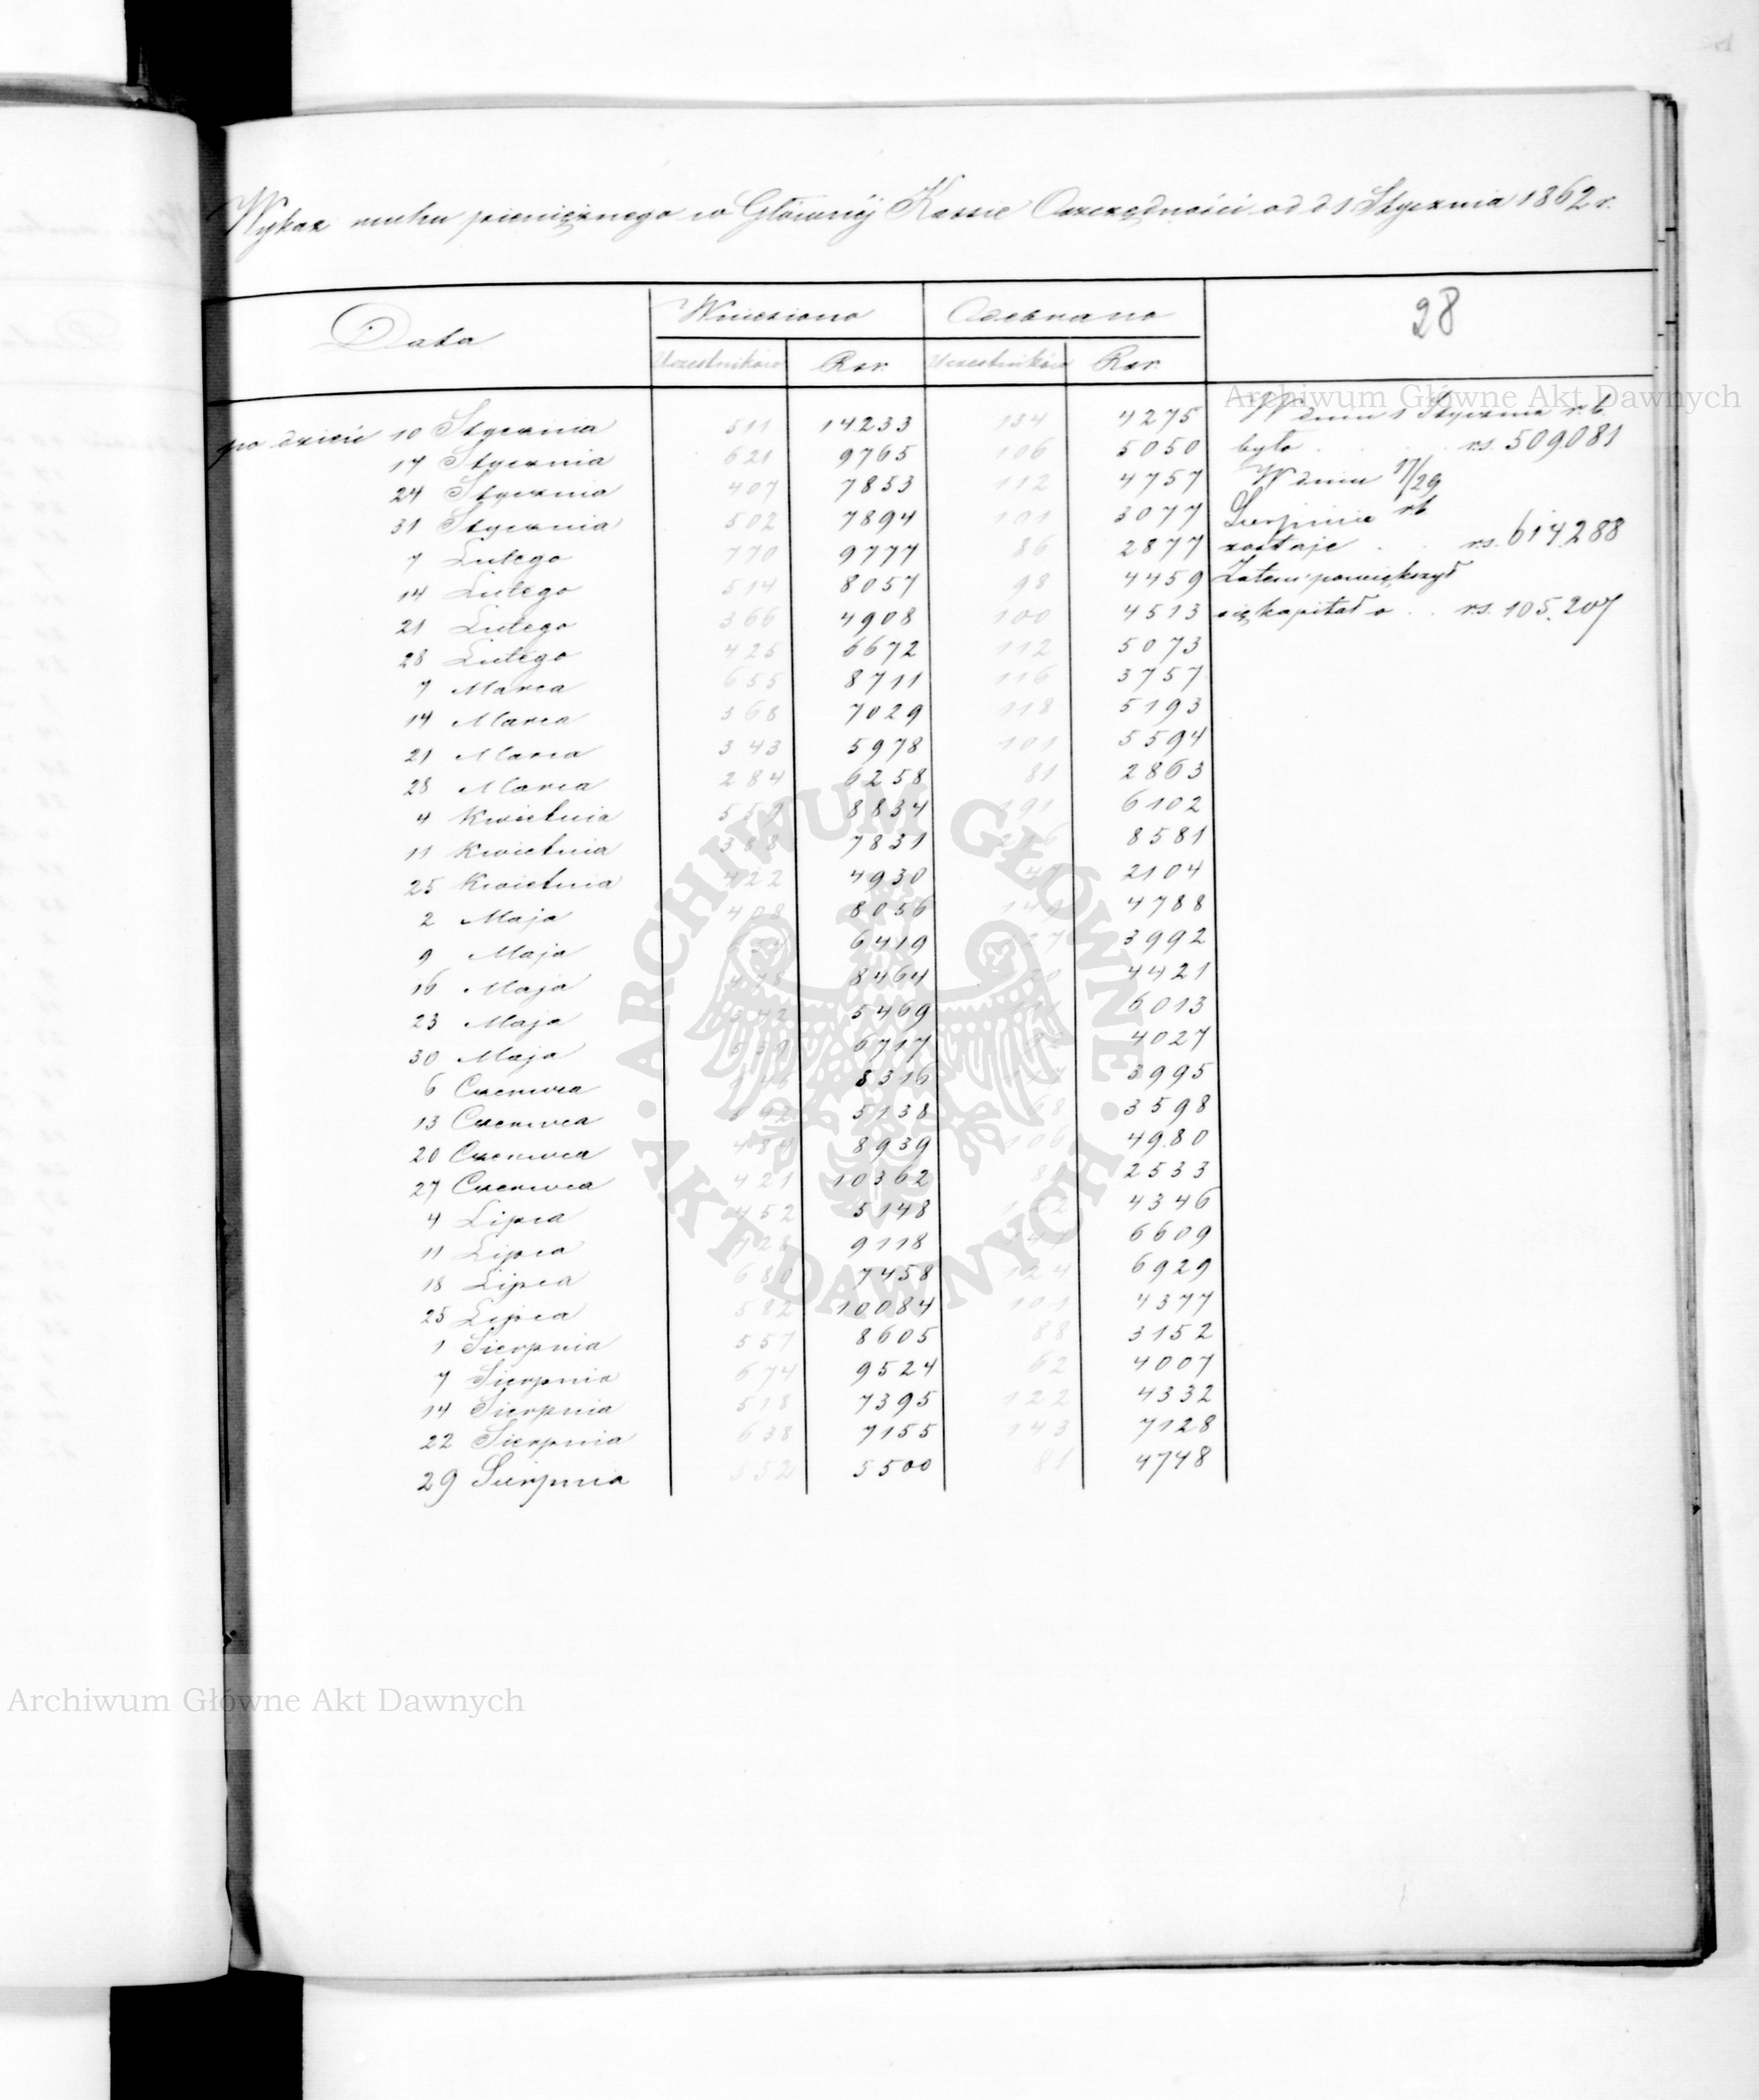 Wykaz ruchu pieniężnego w Głównej Kassie Oszczędności od d 1 Stycznia 1862 r.
Data Wniesiono Odebrano 28
Uczestników Rsr. Uczestników Rsr.
Archiwum Główne Akt Dawnych
po dzień 10 Stycznia 511 14233 134 4275 W dniu 1 Stycznia rb.
17 Stycznia 621 9765 106 5050 było . . . rs. 509.081
24 Stycznia 407 7853 112 4757 W dniu 17/29
31 Stycznia 502 7894 101 3077 Sierpnia rb
7 Lutego 770 9777 86 2877 zostaje . . rs. 614.288
14 Lutego 514 8057 98 4459 Zatem powiększył
21 Lutego 366 4908 100 4513 się kapitał o . . rs. 105.207
28 Lutego 425 6672 112 5073
7 Marca 655 8711 116 3757
14 Marca 368 7029 118 5193
21 Marca 343 5978 101 5594
28 Marca 284 6258 81 2863
4 Kwietnia 8834 191 6102
11 Kwietnia 388 7831 8581
25 Kwietnia 422 4930 2104
2 Maja 408 8056 4788
9 Maja 6419 3992
16 Maja 8464 4421
23 Maja 542 5469 6013
30 Maja 539 6717 4027
6 Czerwca 8316 3995
13 Czerwca 542 5138 68 3598
20 Czerwca 484 8939 106 4980
27 Czerwca 421 10362 2533
4 Lipca 452 5148 4346
11 Lipca 9118 6609
18 Lipca 680 7458 124 6929
25 Lipca 582 10084 101 4377
1 Sierpnia 557 8605 88 3152
7 Sierpnia 674 9524 62 4007
14 Sierpnia 518 7395 122 4332
22 Sierpnia 638 7155 143 7128
29 Sierpnia 552 5500 81 4748
ARCHIWUM GŁÓWNE
AKT DAWNYCH
Archiwum Główne Akt Dawnych